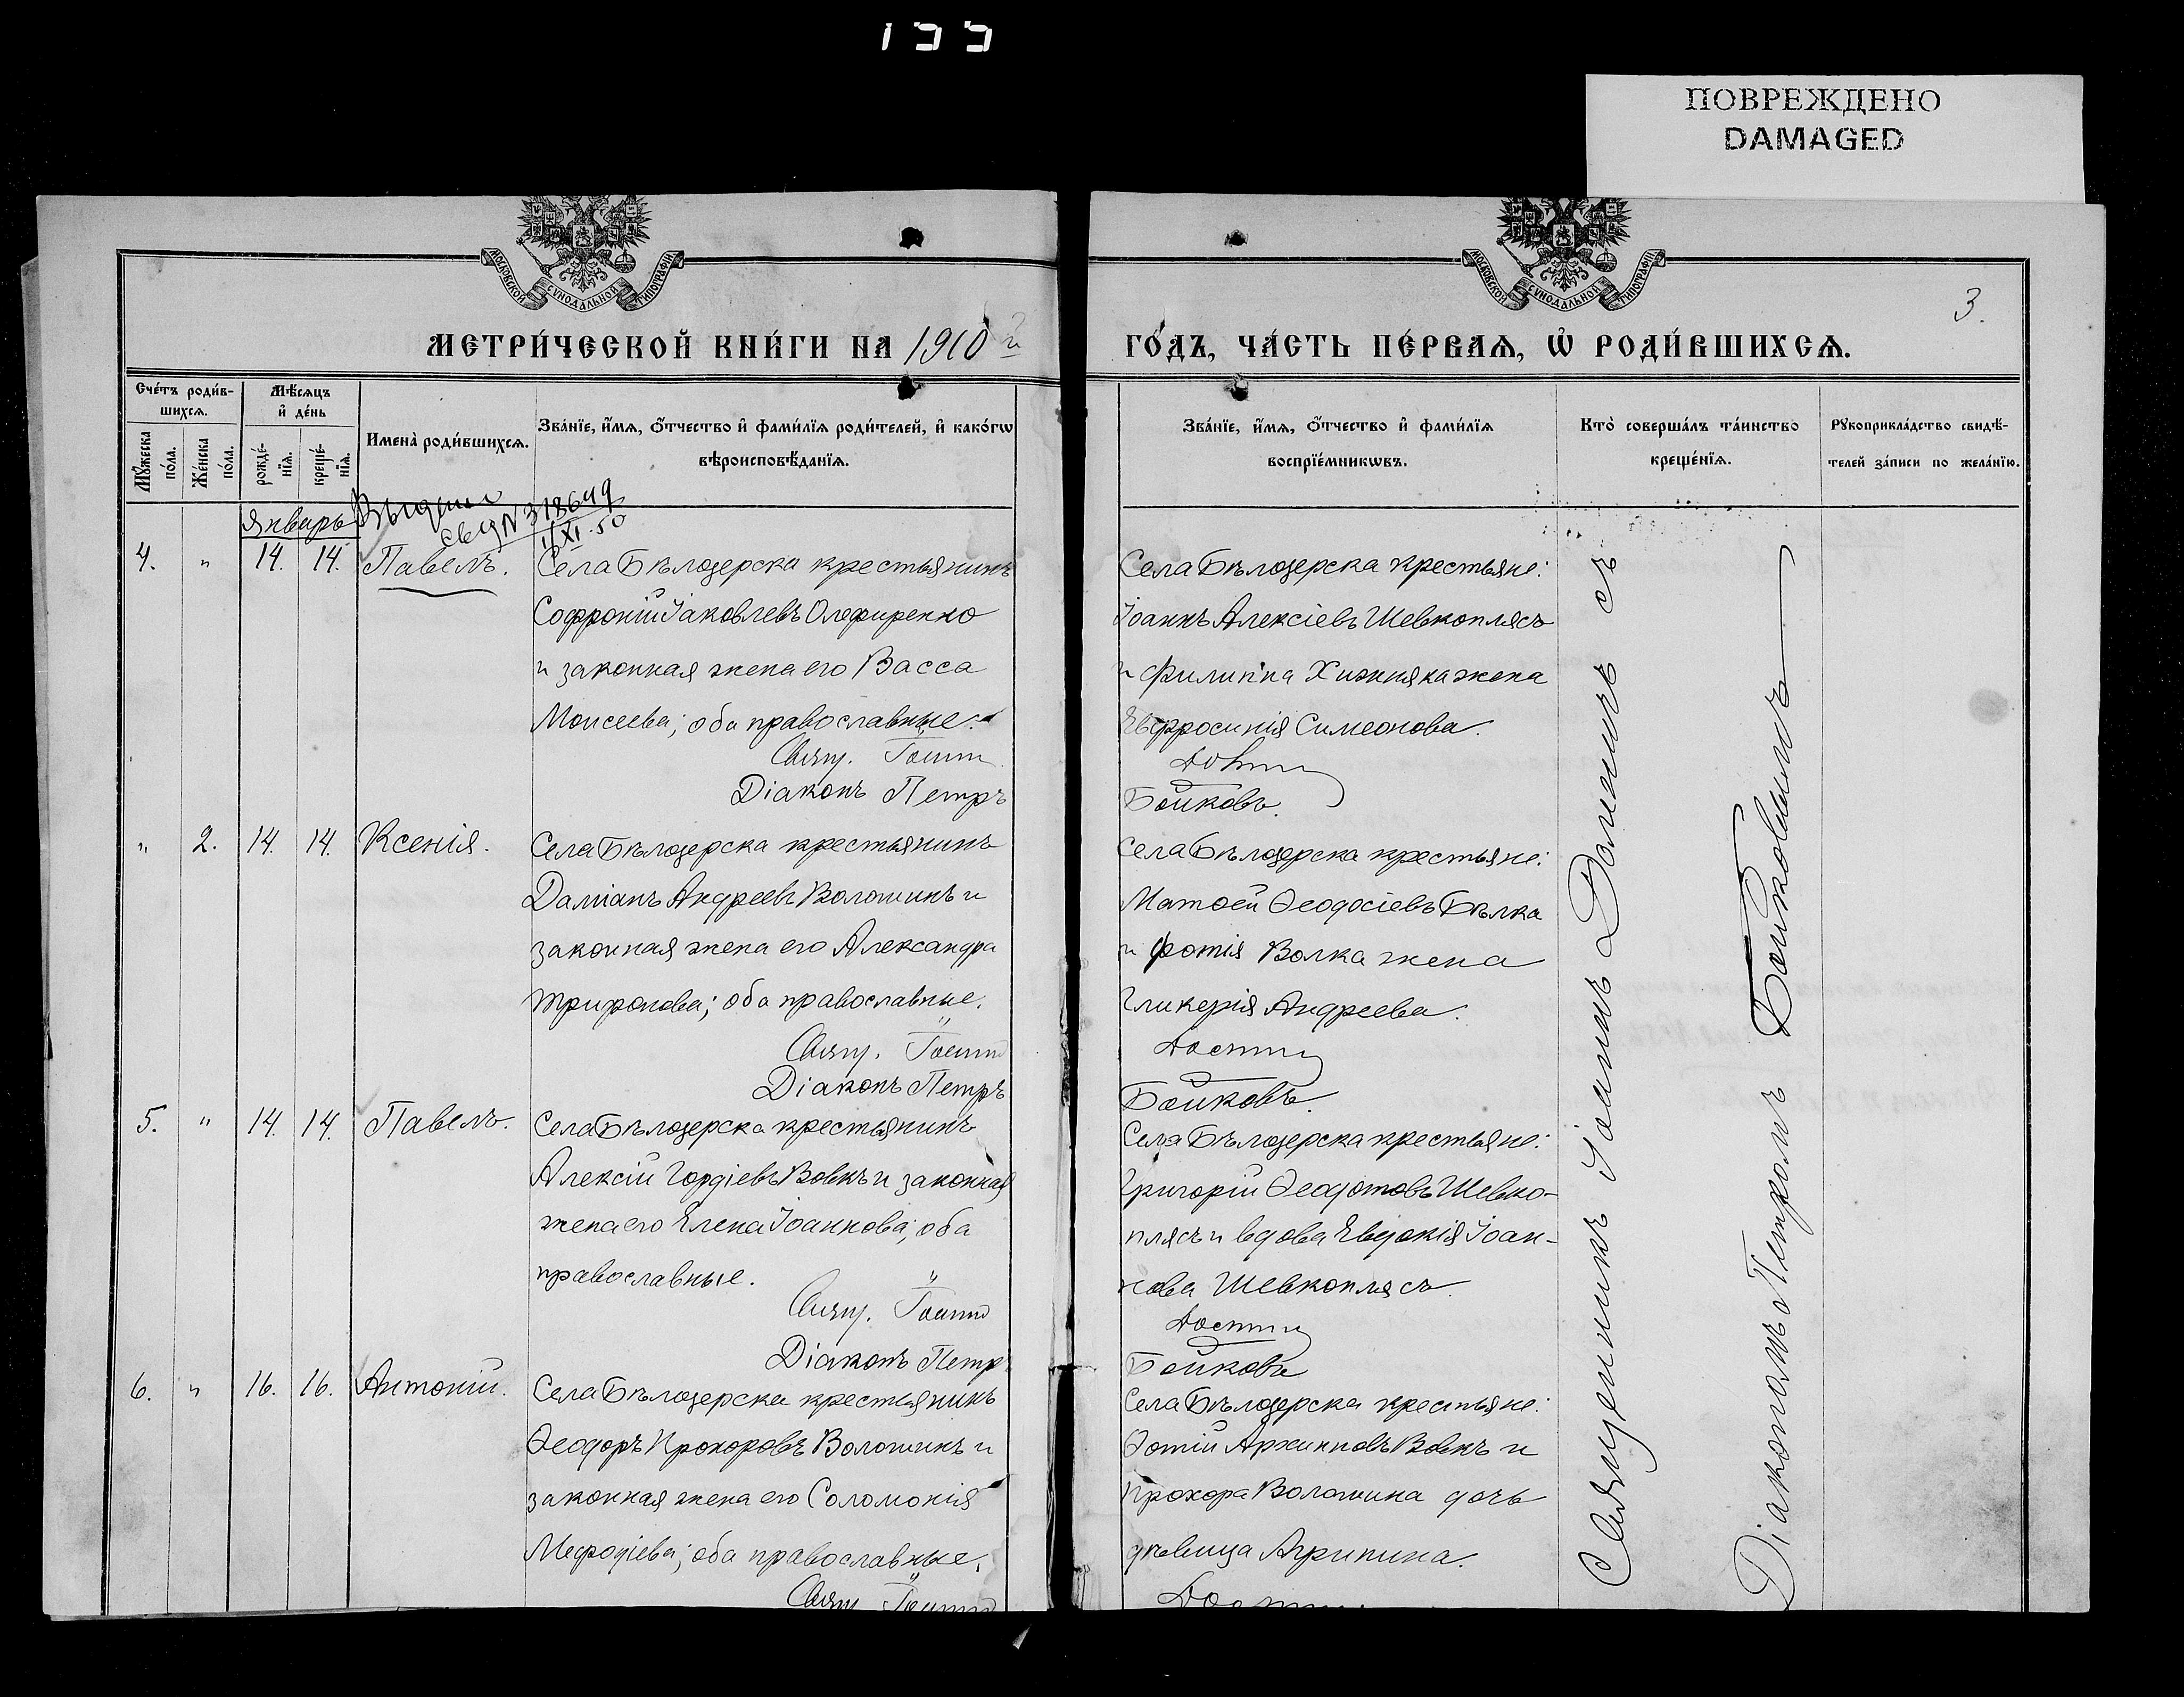 ПОВРЕЖДЕНО
DAMAGED
МОСКОВСКОЙ СѴНОДАЛЬНОЙ ТИПОГРАФІИ
МОСКОВСКОЙ СѴНОДАЛЬНОЙ ТИПОГРАФІИ
3.
МЕТРИ́ЧЕСКОЙ КНИ́ГИ НА 1910 й
ГО́ДЪ, ЧА́СТЬ ПЕ́РВАѦ, Ѡ҆ РОДИ́ВШИХСѦ.
Сче́тъ роди́в-
шихсѧ.
Мѣ́сѧцъ
и҆ де́нь
Мꙋ́жеска
по́ла.
Же́нска
по́ла.
рожде́-
нїѧ.
креще́-
нїѧ.
Имена̀ роди́вшихсѧ.
Зва́нїе, и҆́мѧ, ѻ҆́тчество и҆ фами́лїѧ роди́телей, и҆ како́гѡ
вѣроисповѣ́данїѧ.
Зва́нїе, и҆́мѧ, ѻ҆́тчество и҆ фами́лїѧ
воспрїе́мникѡвъ.
Кто̀ соверша́лъ та́инство
креще́нїѧ.
Рꙋкоприкла́дство свидѣ́-
телей за́писи по жела́нїю.
Январь
свид N 318649
1/XI.50
4. " 14. 14. Павелъ.
Села Бѣлозерска крестьянинъ
Софроній Іаковлевъ Олефиренко
и законная жена его Васса
Моисеева; оба православные.
Свящ. Іоаннъ
Діаконъ Петръ
Села Бѣлозерска крестьяне:
Іоаннъ Алексіевъ Шевкоплясъ
и Филиппа Хижняка жена
Евфросинія Симеонова.
Бойковъ.
" 2. 14. 14. Ксенія.
Села Бѣлозерска крестьянинъ
Даміанъ Андреевъ Волошинъ и
законная жена его Александра
Трифонова; оба православные.
Свящ. Іоаннъ
Діаконъ Петръ
Села Бѣлозерска крестьяне:
Матѳей Ѳеодосіевъ Бѣлка
и Фотія Волка жена
Гликерія Андреева.
Бойковъ.
5. " 14. 14. Павелъ.
Села Бѣлозерска крестьянинъ
Алексій Гордіевъ Вовкъ и законная
жена его Елена Іоаннова; оба
православные.
Свящ. Іоаннъ
Діаконъ Петръ
Села Бѣлозерска крестьяне:
Григорій Ѳеодотовъ Шевко-
плясъ и вдова Евдокія Іоан-
нова Шевкоплясъ.
Бойковъ
6. " 16. 16. Антоній.
Села Бѣлозерска крестьянинъ
Ѳеодоръ Прохоровъ Волошинъ и
законная жена его Соломонія
Меѳодіева; оба православные.
Свящ. Іоаннъ
Села Бѣлозерска крестьяне:
Фотій Архипповъ Вовкъ и
Прохора Волошина дочь
дѣвица Агрипина.
Священникъ Іоаннъ съ
Діакономъ Петромъ Бойковымъ